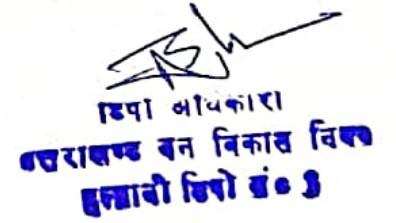 डिपो अधिकारी
उत्तराखण्ड वन विकास निगम
डिपो सं० 3